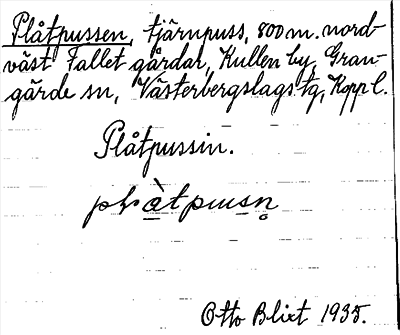 Plåtpussen, tjärnpuss, 800 m. nord-
väst Fallet gårdar, Kullen by, Gran-
gärde sn, Västerbergslags tg, Kopp l.
Plåtpussin.
Otto Blixt 1935.